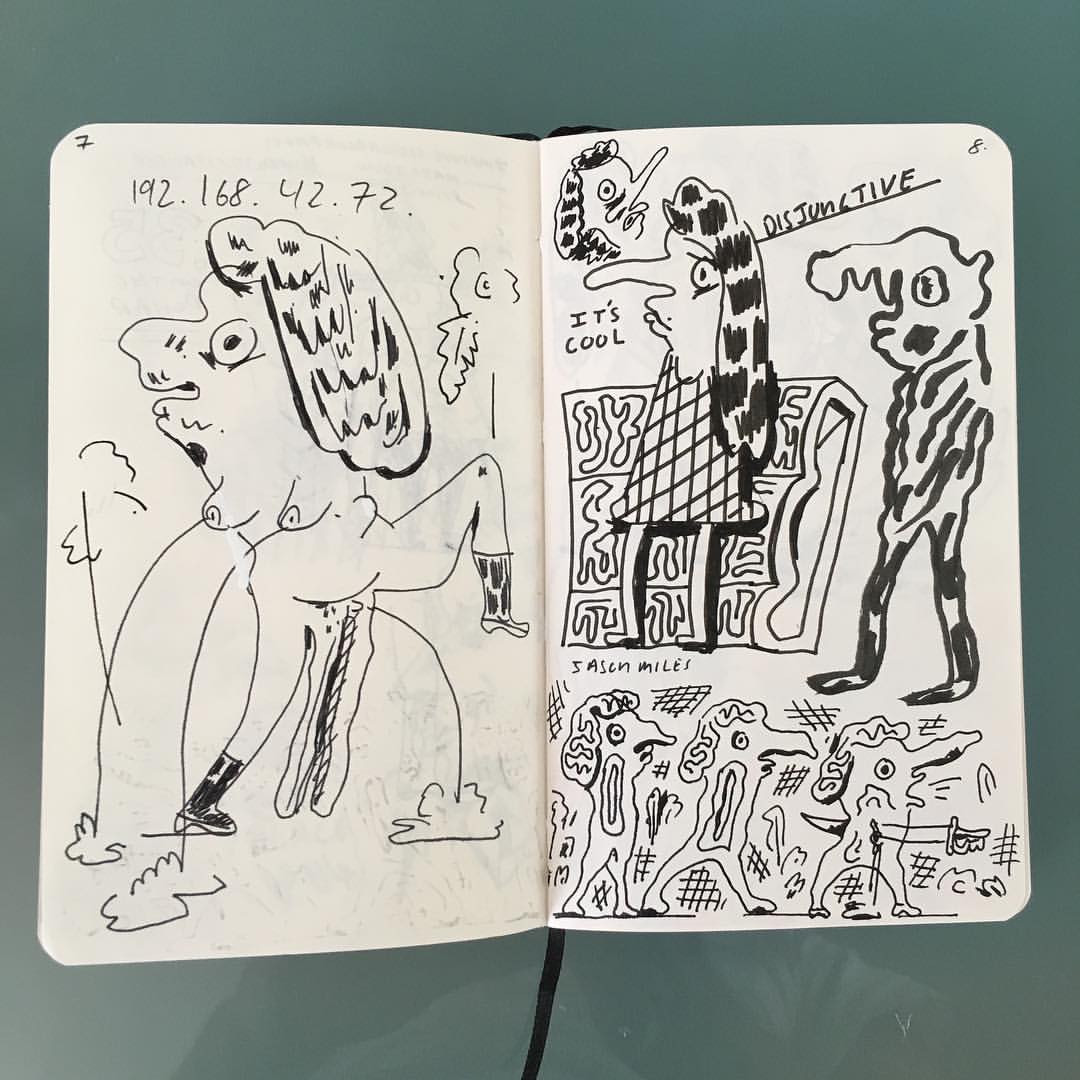 7
192.168.42.72.
8.
DISJUNCTIVE
IT'S
COOL
JASON MILES